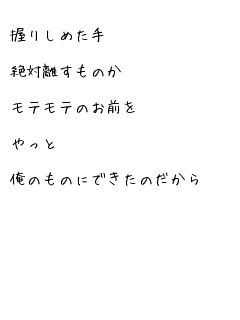 握りしめた手
絶対離すものか
モテモテのお前を
やっと
俺のものにできたのだから